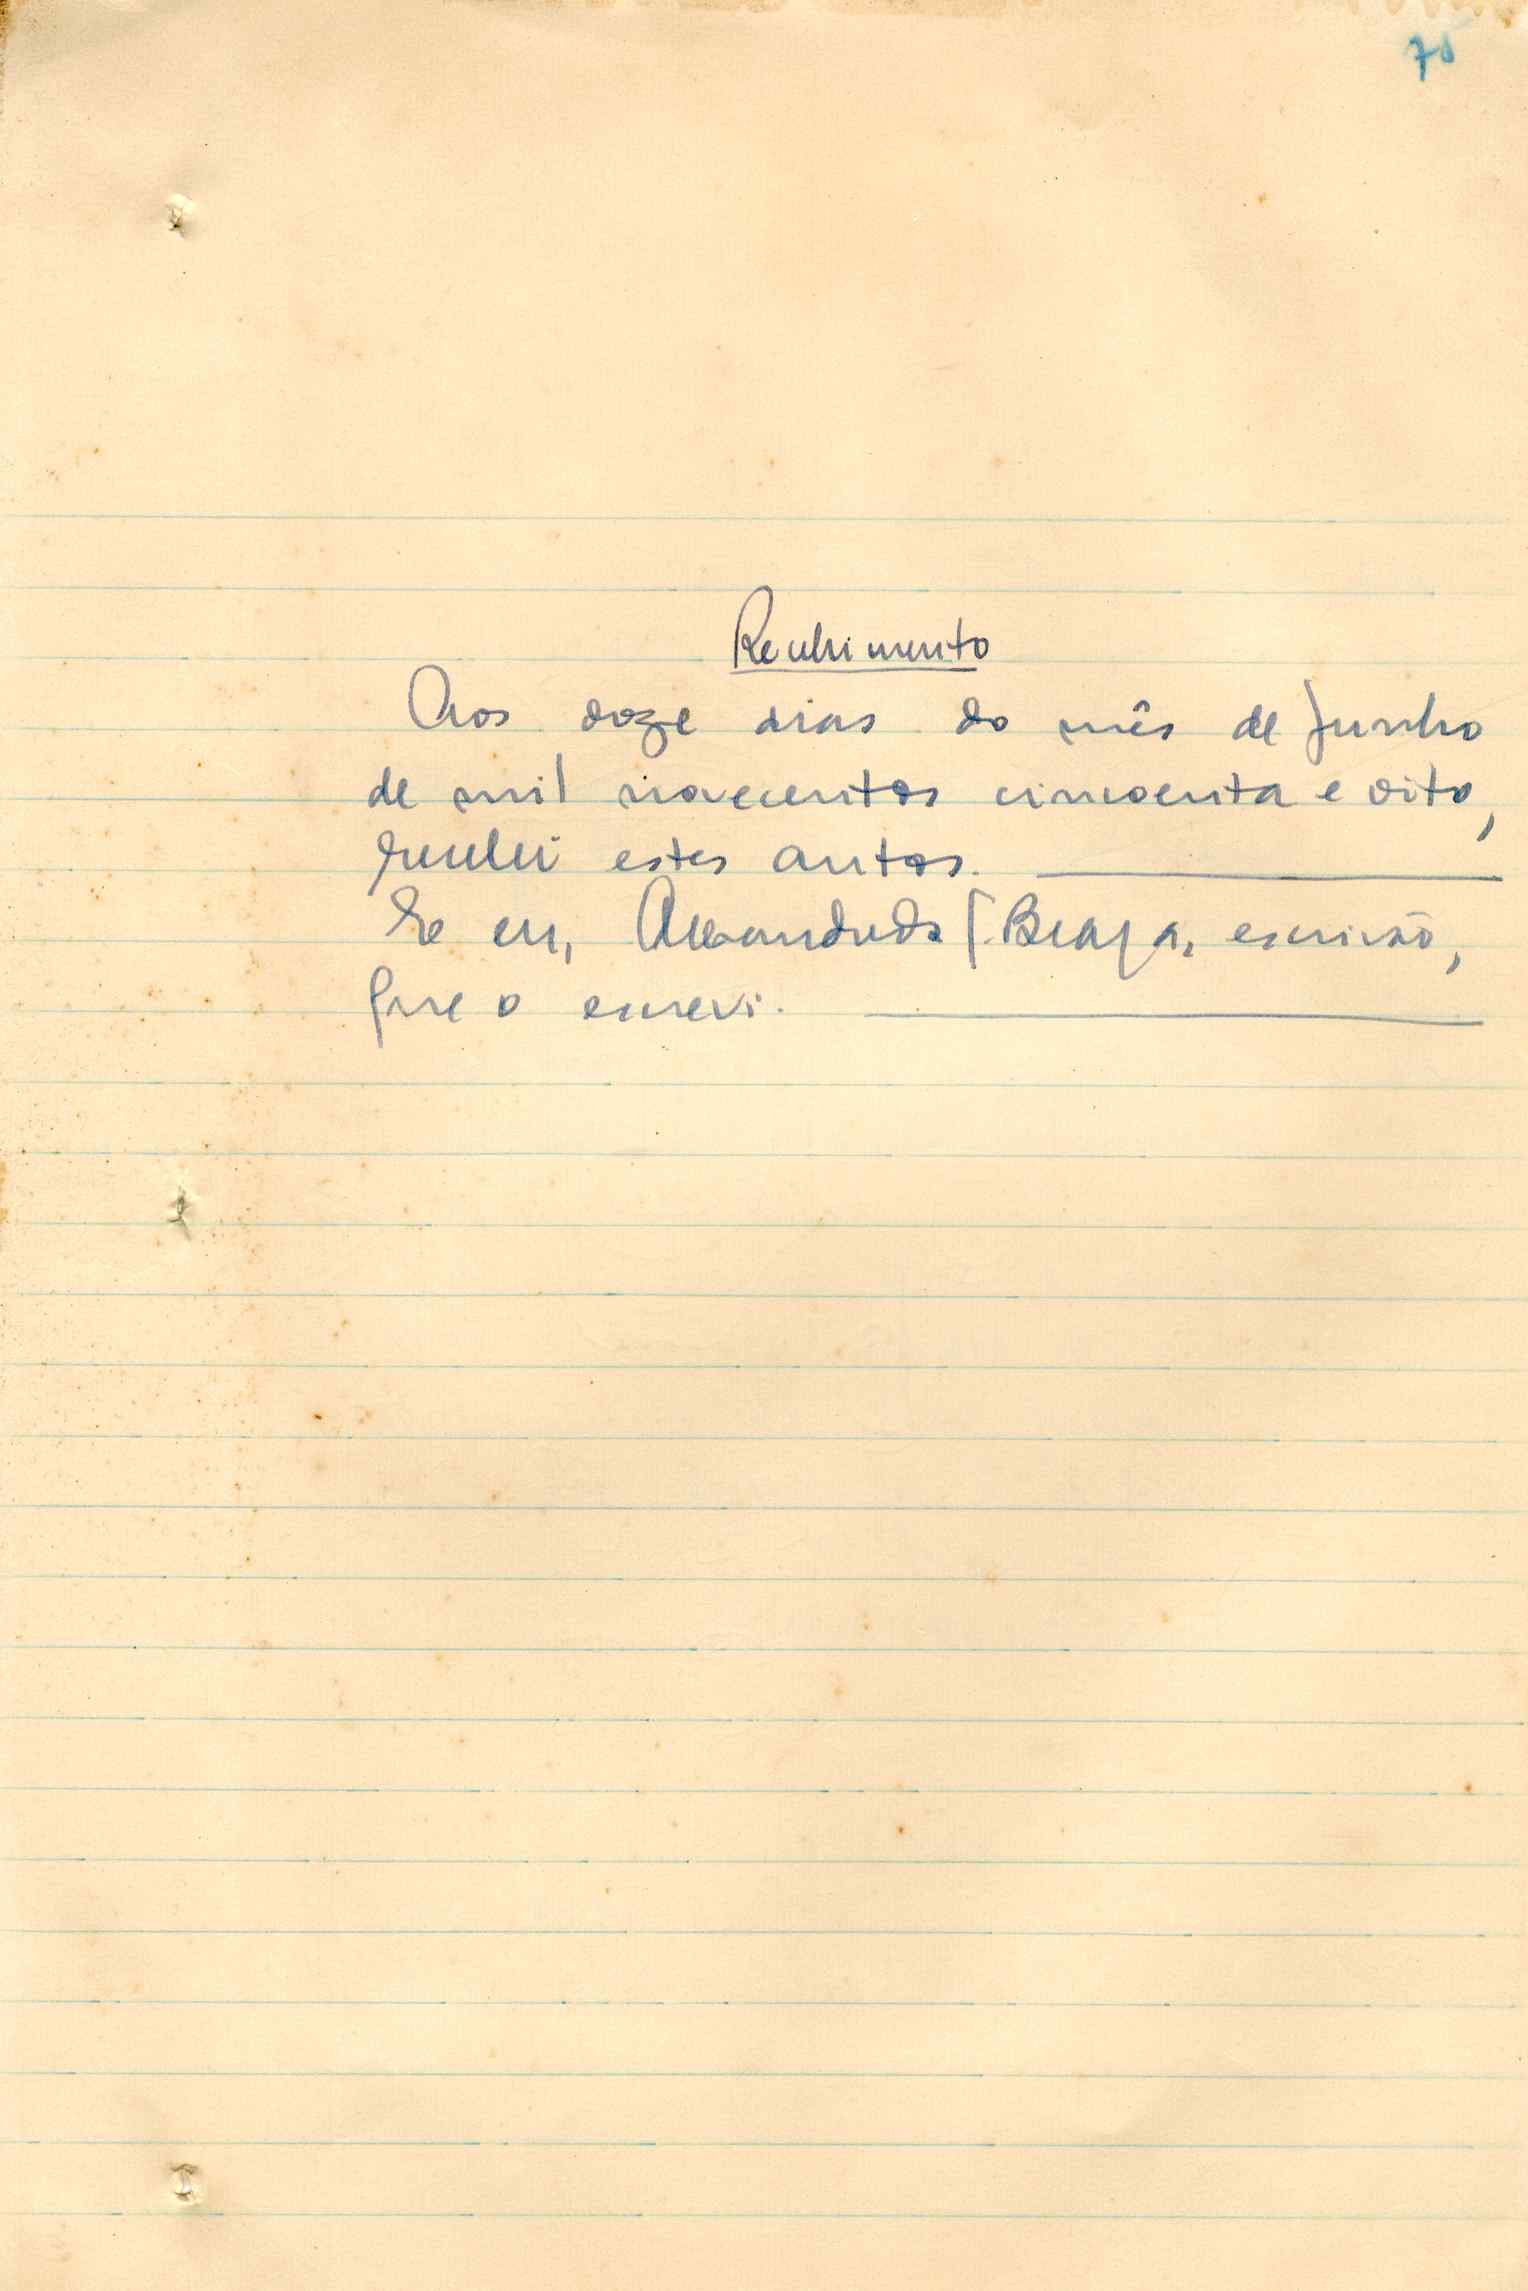 Recebimento
Aos doze dias do mês de Junho
de mil novecentos cincoenta e oito,
recebi estes autos.
E eu, Braga, escrivão,
que o escrevi.